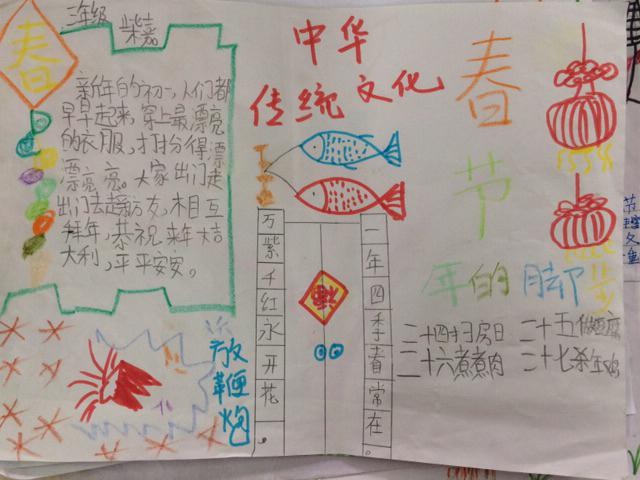 三年级 柴嘉
春
新年的初一,人们都
早早起来,穿上最漂亮
的衣服,打扮得漂
漂亮亮。大家出门走
出门去走亲访友,相互
拜年,恭祝来年大吉
大利,平平安安。
中华
传统文化
万紫千红永开花。
一年四季春常在。
放鞭炮
春节
年的脚步
二十四扫房日 二十五做豆腐
二十六煮煮肉 二十七杀年鸡